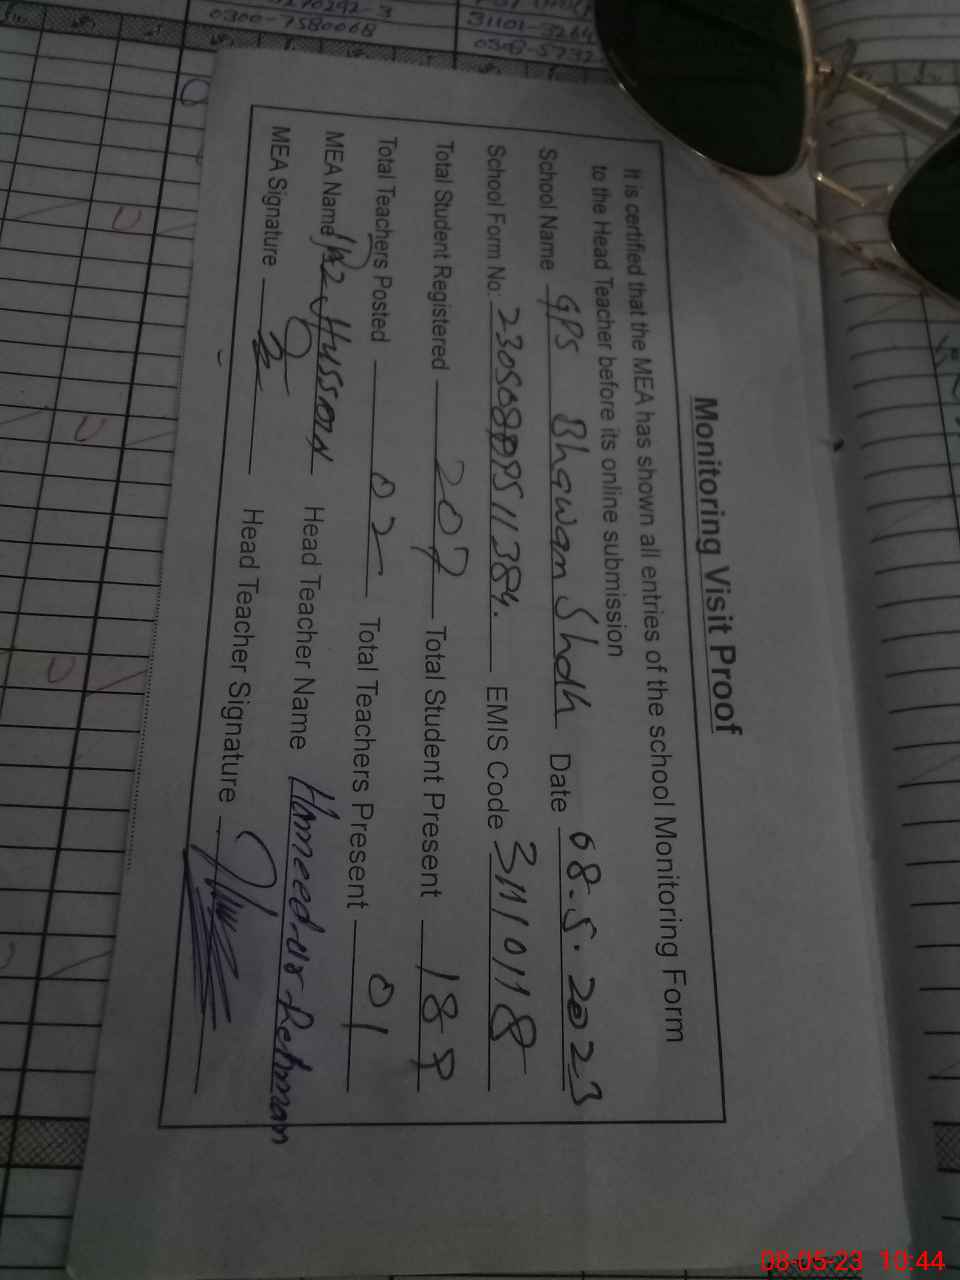 Monitoring Visit Proof
It is certified that the MEA has shown all entries of the school Monitoring Form
to the Head Teacher before its online submission
School Name GPS Bhawan Shah Date 08.5.2023
School Form No: EMIS Code 31110118
Total Student Registered 207 Total Student Present
Total Teachers Posted 02 Total Teachers Present 01
MEA Name Hussain Head Teacher Name Hameed-ur-Rehman
MEA Signature Head Teacher Signature
0300-7580068
08-05-23 10:44